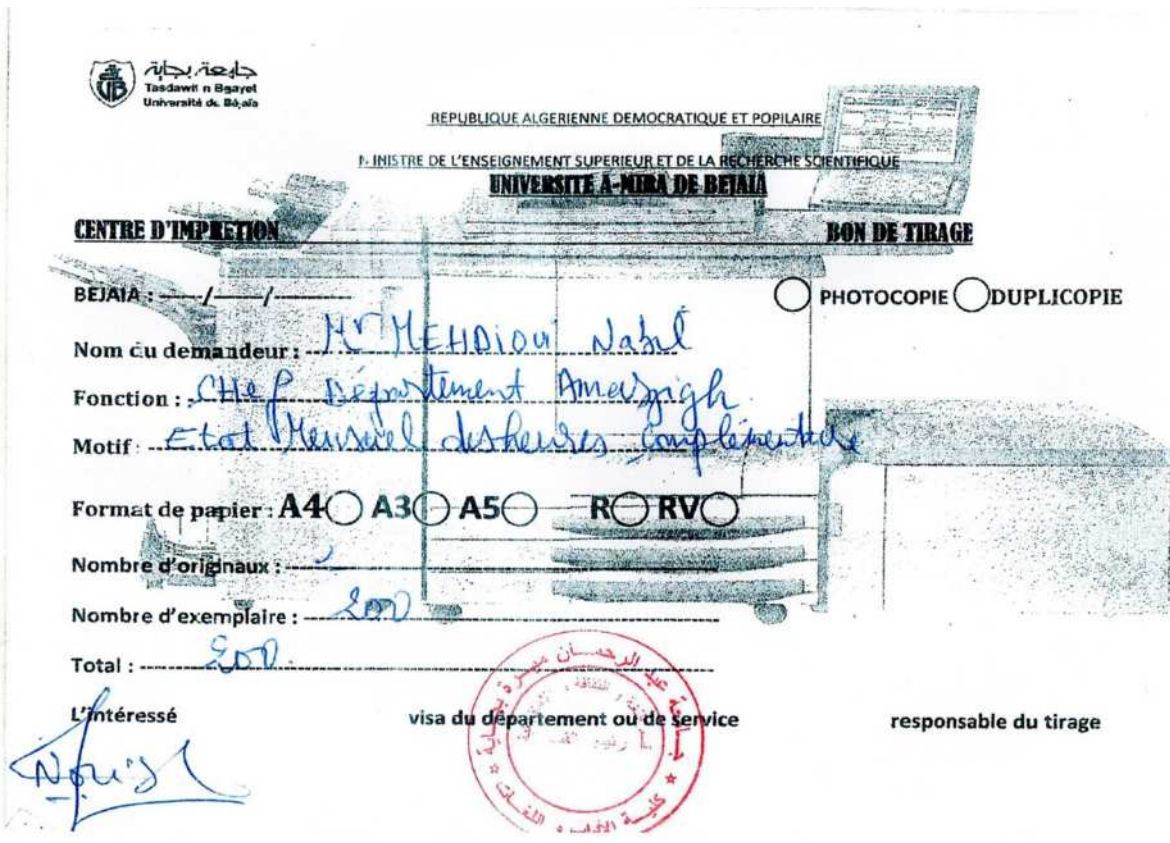 جامعة بجاية
Tasdawit n Bgayet
Université de Béjaïa
REPUBLIQUE ALGERIENNE DEMOCRATIQUE ET POPILAIRE
INISTRE DE L'ENSEIGNEMENT SUPERIEUR ET DE LA RECHERCHE SCIENTIFIQUE
UNIVERSITE A-MIRA DE BEJAIA
CENTRE D'IMPRETION BON DE TIRAGE
BEJAIA : ----/----/--------- PHOTOCOPIE DUPLICOPIE
Nom du demandeur : Mr MEHDIOUI Nabil
Fonction : CHef Département Amazigh
Motif : Etat Mensuel des heures complémentaire
Format de papier : A4 A3 A5 R RV
Nombre d'originaux :
Nombre d'exemplaire : 200
Total : 200
L'intéressé visa du département ou de service responsable du tirage
جامعة عبد الرحمان ميرة بجاية
كلية الآداب و اللغات